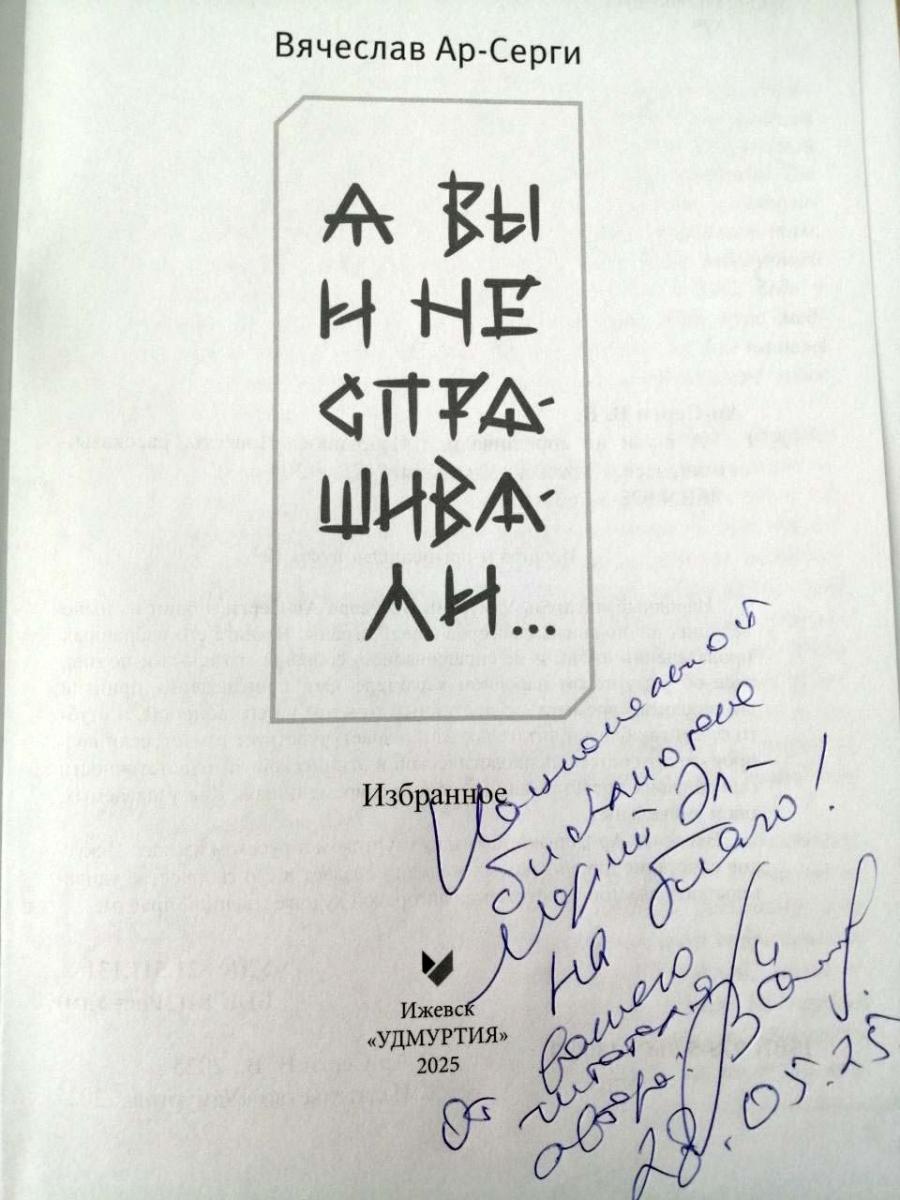 Вячеслав Ар-Серги
А ВЫ
И НЕ
СПРА-
ШИВА-
ЛИ...
Избранное
Национальной
библиотеке
Марий Эл –
на благо!
От вашего
читателя и
автора:
28.05.25
Ижевск
«УДМУРТИЯ»
2025